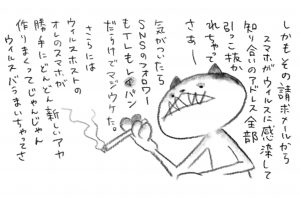 しかもその請ボメールから
スマホがウィルスに感染して
知り合いのアドレス全部
引っこ抜か
れちゃって
さぁー
気がついたら
SNSのフォロワー
もTLもレイバン
だらけでマジウケた。
さらには
ウィルスホストの
オレのスマホが
勝手にどんどん新しいアカ
作りまくってじゃんじゃん
ウィルスバラまいちゃってさ